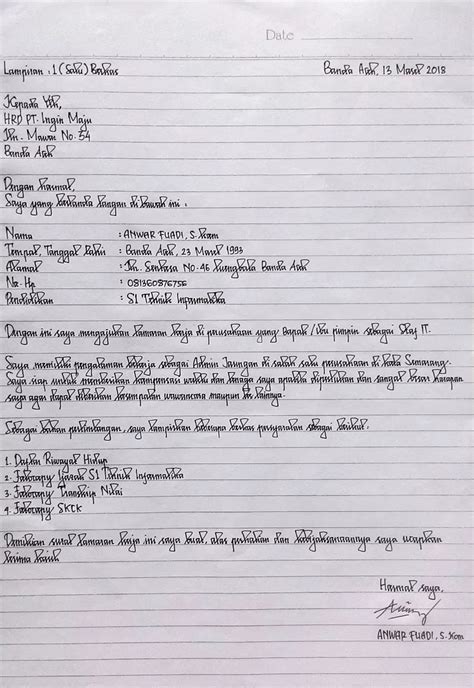 Date
Lampiran : 1 (Satu) Berkas Banda Aceh, 13 Maret 2018
Kepada Yth,
HRD PT. Ingin Maju
Jln. Mawar No. 54
Banda Aceh
Dengan hormat,
Saya yang bertanda tangan di bawah ini :
Nama : ANWAR FUADI, S.Kom
Tempat, Tanggal Lahir : Banda Aceh, 23 Maret 1993
Alamat : Jln. Sentosa No.46 Luengbata Banda Aceh
No. Hp : 081360876756
Pendidikan : S1 Teknik Informatika
Dengan ini saya mengajukan lamaran kerja di perusahaan yang Bapak / Ibu pimpin sebagai Staf IT.
Saya memiliki pengalaman bekerja sebagai Admin Jaringan di salah satu perusahaan di kota Semarang.
Saya siap untuk memberikan kompensasi waktu dan tenaga saya apabila diperlukan dan sangat besar harapan
saya agar dapat diberikan kesempatan wawancara maupun tes lainnya.
Sebagai bahan pertimbangan, saya lampirkan beberapa berkas persyaratan sebagai berikut:
1. Daftar Riwayat Hidup
2. Fotocopy Ijazah S1 Teknik Informatika
3. Fotocopy Transkrip Nilai
4. Fotocopy SKCK
Demikian surat lamaran kerja ini saya buat, atas perhatian dan kebijaksanaannya saya ucapkan
terima kasih
Hormat saya,
ANWAR FUADI, S.Kom